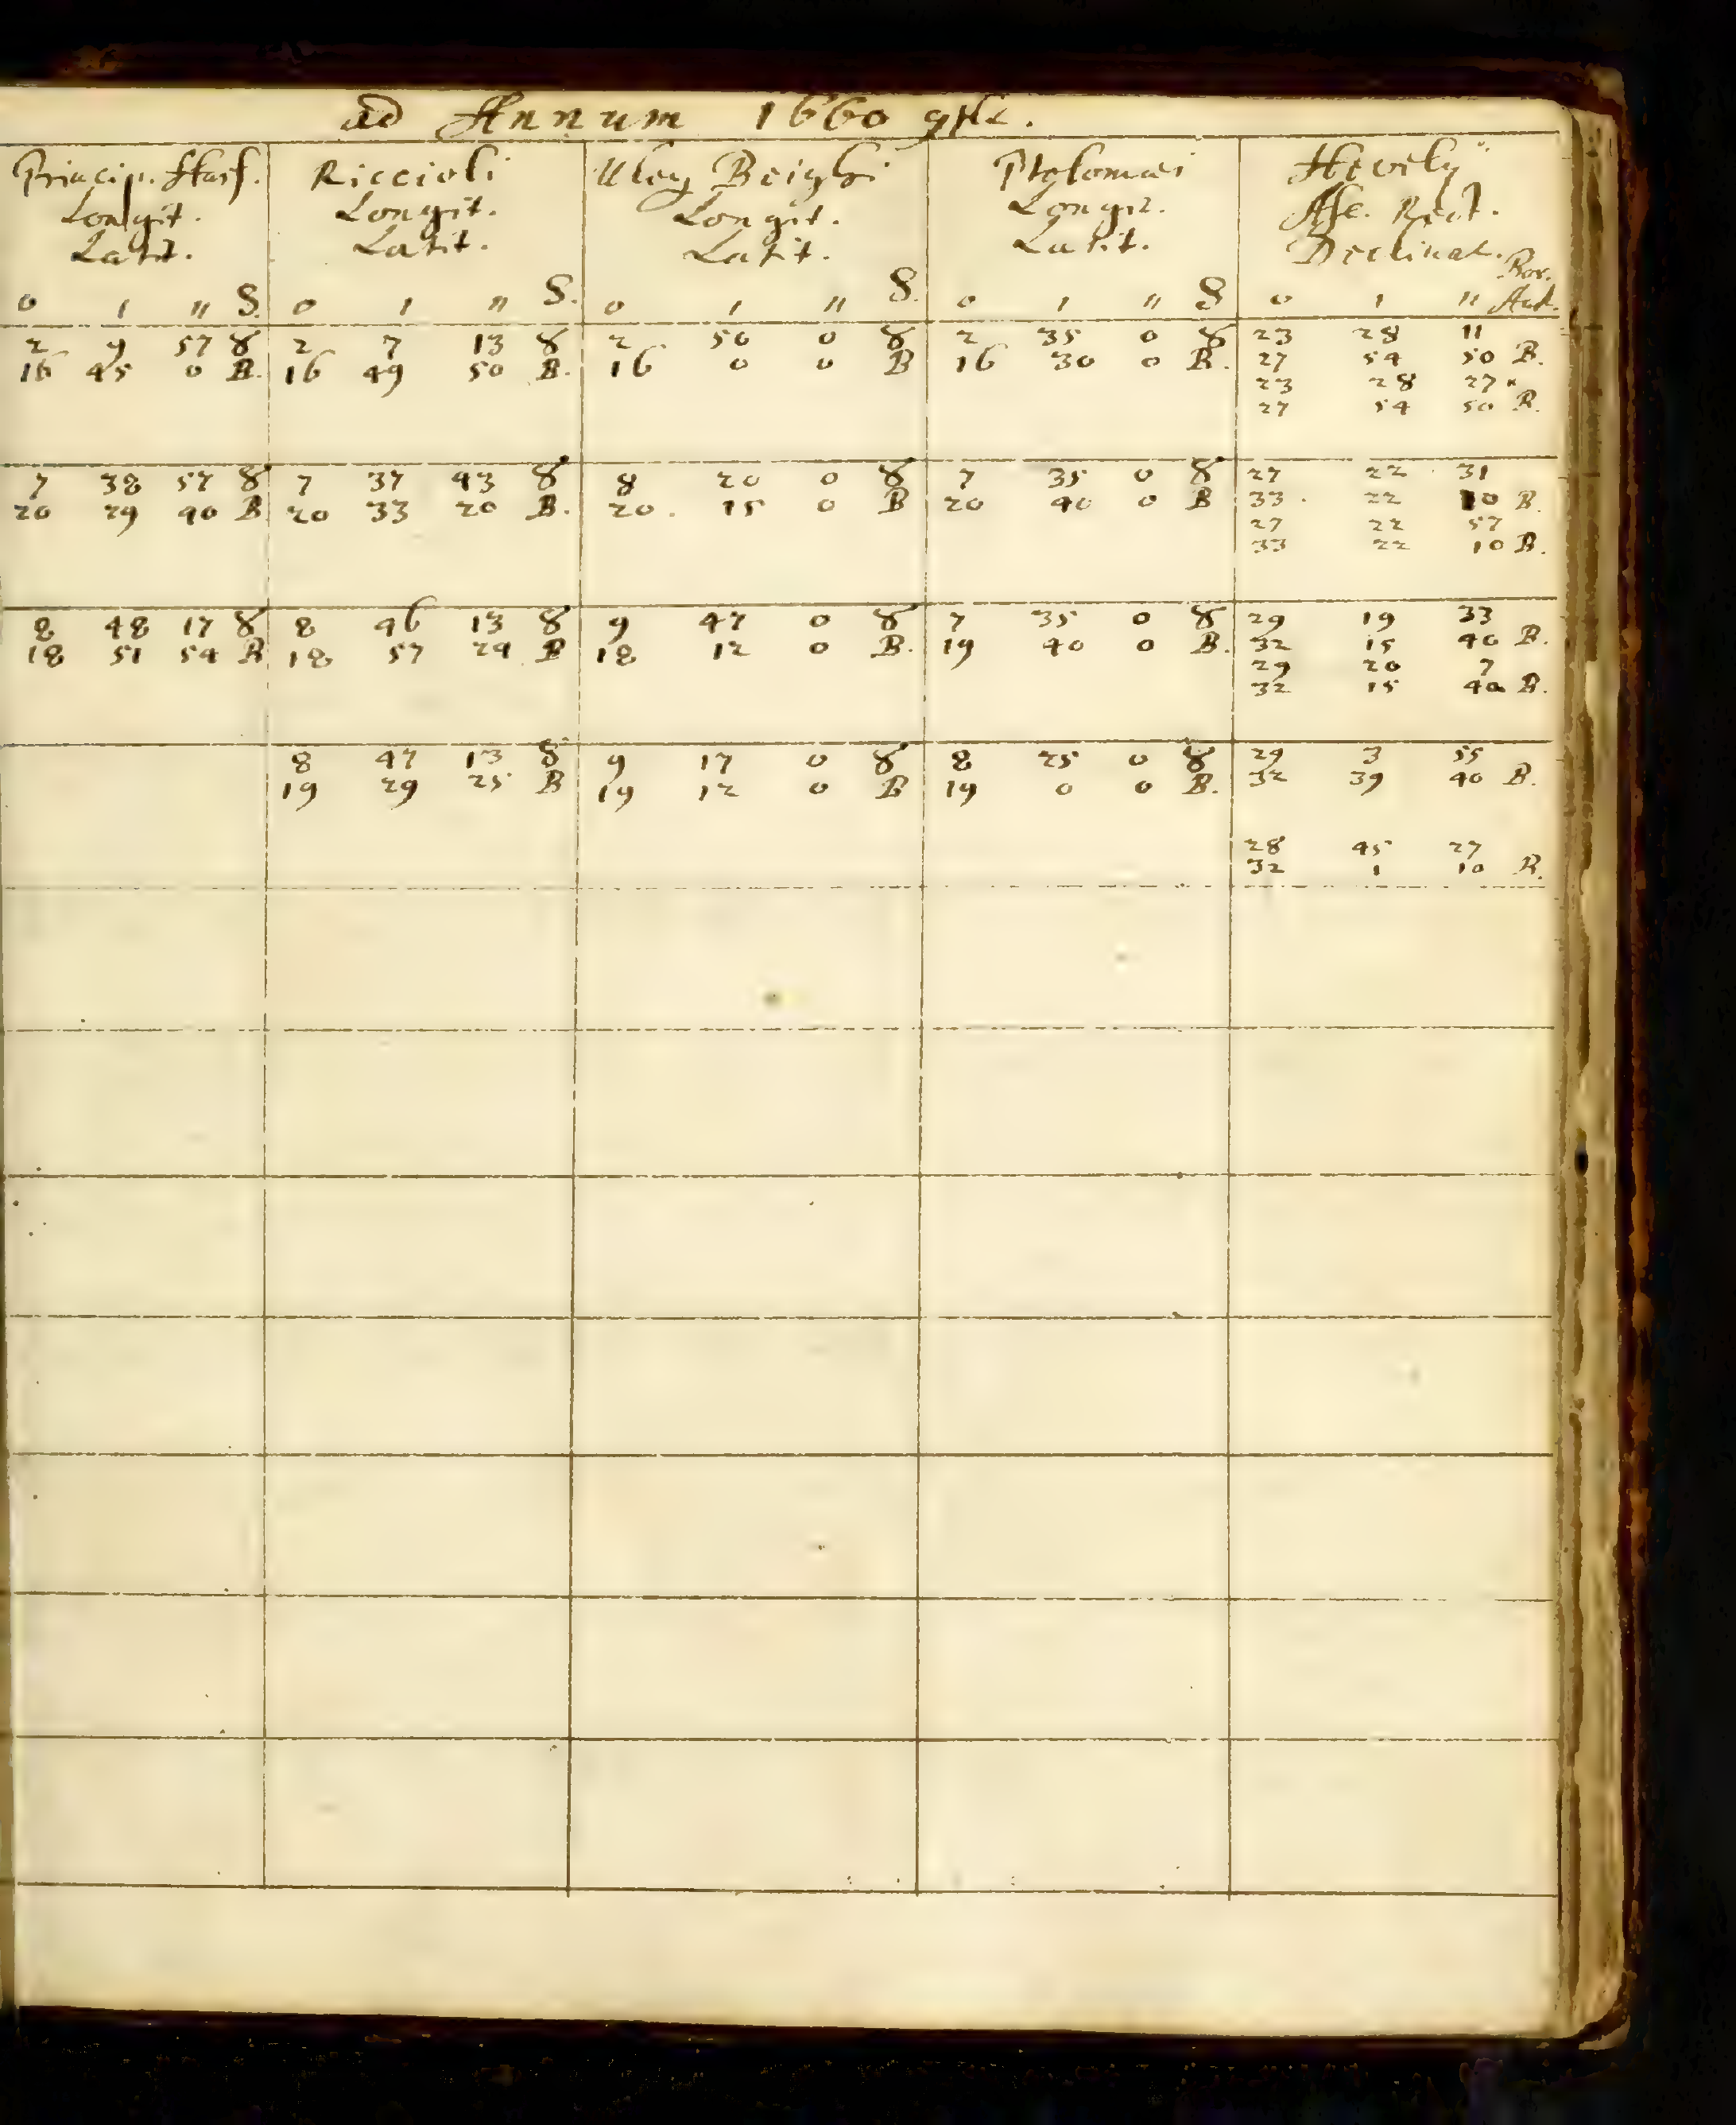 ad Annum 1660
Princip. Hass. Riccioli Uleg Beighi Ptolomæi Hevelÿ
Longit. Longit. Longit. Longit. Asc. Rect.
Latit. Latit. Latit. Latit. Declinat. Bor.
0 ' " S. 0 ' " S. 0 ' " S. 0 ' " S 0 ' " Aust.
2 9 57 ♉ 2 7 13 ♉ 2 50 0 ♉ 2 35 0 ♉ 23 28 11
16 45 0 B. 16 49 50 B. 16 0 0 B 16 30 0 B. 27 54 50 B.
23 28 27
27 54 50 B.
7 38 57 ♉ 7 37 43 ♉ 8 20 0 ♉ 7 35 0 ♉ 27 22 31
20 29 40 B 20 33 20 B. 20 15 0 B 20 40 0 B 33 22 10 B.
27 22 57
33 22 10 B.
8 48 17 ♉ 8 46 13 ♉ 9 47 0 ♉ 7 35 0 ♉ 29 19 33
18 51 54 B 18 57 24 B 18 12 0 B. 19 40 0 B. 32 15 40 B.
29 20 7
32 15 40 B.
8 47 13 ♉ 9 17 0 ♉ 8 25 0 ♉ 29 3 55
19 29 25 B 19 12 0 B 19 0 0 B. 32 39 40 B.
28 45 27
32 1 10 B.